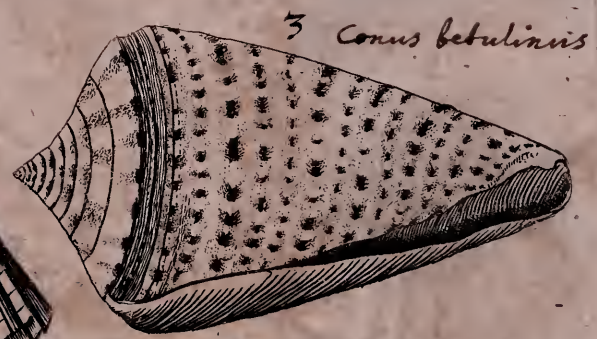 3 Conus betulinus